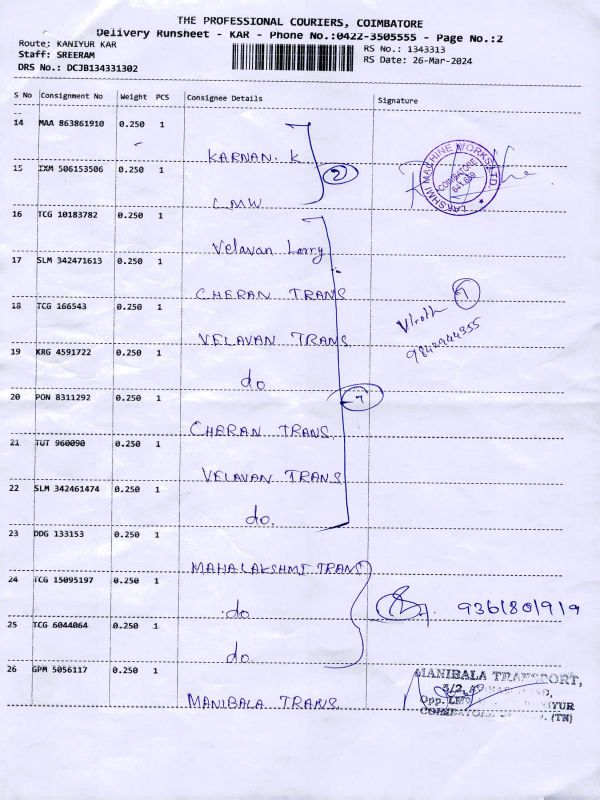 THE PROFESSIONAL COURIERS, COIMBATORE
Delivery Runsheet - KAR - Phone No.:0422-3505555 - Page No.:2
Route: KANIYUR KAR
Staff: SREERAM
DRS No.: DCJB134331302
RS No.: 1343313
RS Date: 26-Mar-2024
S No Consignment No Weight PCS Consignee Details Signature
14 MAA 863861910 0.250 1
KARNAN. K
15 IXM 506153506 0.250 1
LMW
2
LAKSHMI MACHINE WORKS LTD
COIMBATORE
16 TCG 10183782 0.250 1
Velavan Lorry
17 SLM 342471613 0.250 1
CHERAN TRANS
18 TCG 166543 0.250 1
VELAVAN TRANS
7
9842944355
19 KRG 4591722 0.250 1
do
20 PON 8311292 0.250 1
7
CHERAN TRANS.
21 TUT 960090 0.250 1
VELAVAN TRANS
22 SLM 342461474 0.250 1
do.
23 DDG 133153 0.250 1
MAHALAKSHMI TRANS
24 TCG 15095197 0.250 1
do
25 TCG 6044064 0.250 1
do
26 GPM 5056117 0.250 1
MANIBALA TRANS.
MANIBALA TRANSPORT,
Opp. LM
COIMBATORE (TN)